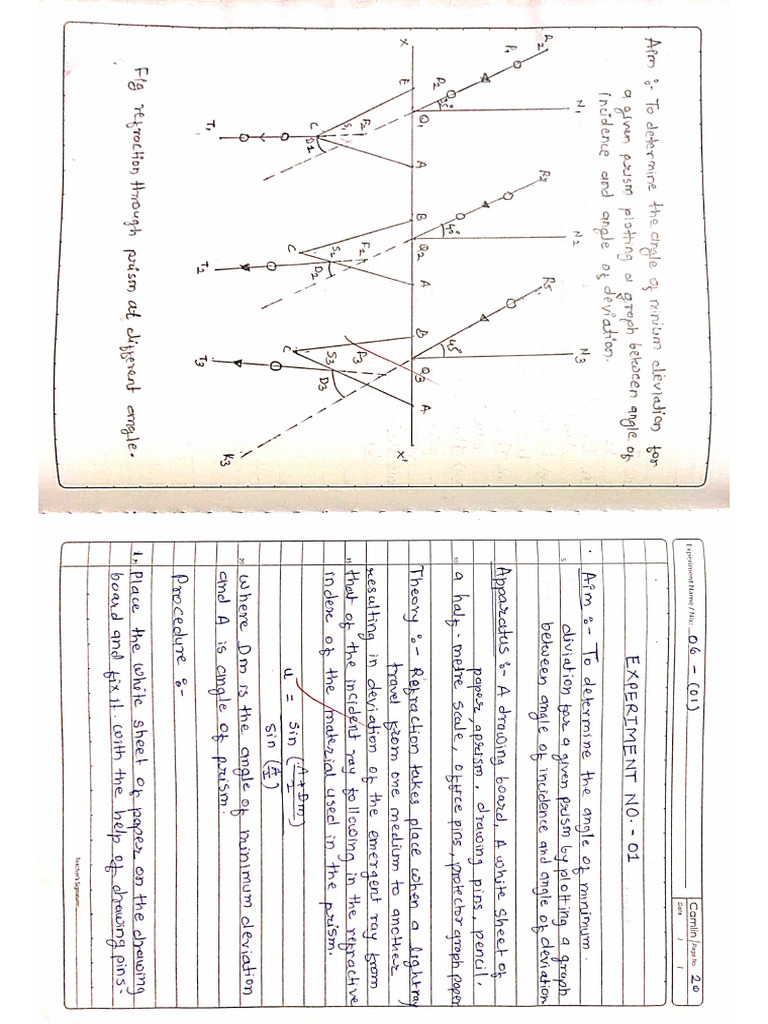 Aim :- To determine the angle of minium deviation for
a given prism plotting a graph between angle of
incidence and angle of deviation.
N1
N2
N3
R2
P1
P2
35°
R4
40°
R5
45°
X
E
Q1
A
B
Q2
A
B
Q3
A
X'
C
S1
F2
D1
C
S2
F2
D2
C
S3
P3
D3
T1
T2
T3
K3
Fig refraction through prism at different angle.
Experiment Name / No.: 06 - (01)
Camlin Page No. 20
Date / /
EXPERIMENT NO. - 01
Aim :- To determine the angle of minimum.
diviation for a given prism by plotting a graph
between angle of incidence and angle of deviation
Apparatus :- A drawing board, A white sheet of
paper, aprism, drawing pins, pencil,
a half - metre scale, office pins, protector graph paper
Theory :- Refraction takes place when a lightray
travel from one medium to another
resulting in deviation of the emergent ray from
that of the incident ray following in the refractive
index of the material used in the prism.
u = sin (A + Dm / 2)
sin (A/2)
where Dm is the angle of minimum deviation
and A is angle of prism.
Procedure :-
1. Place the white sheet of paper on the drawing
board and fix it. with the help of drawing pins.
Teacher's Signature